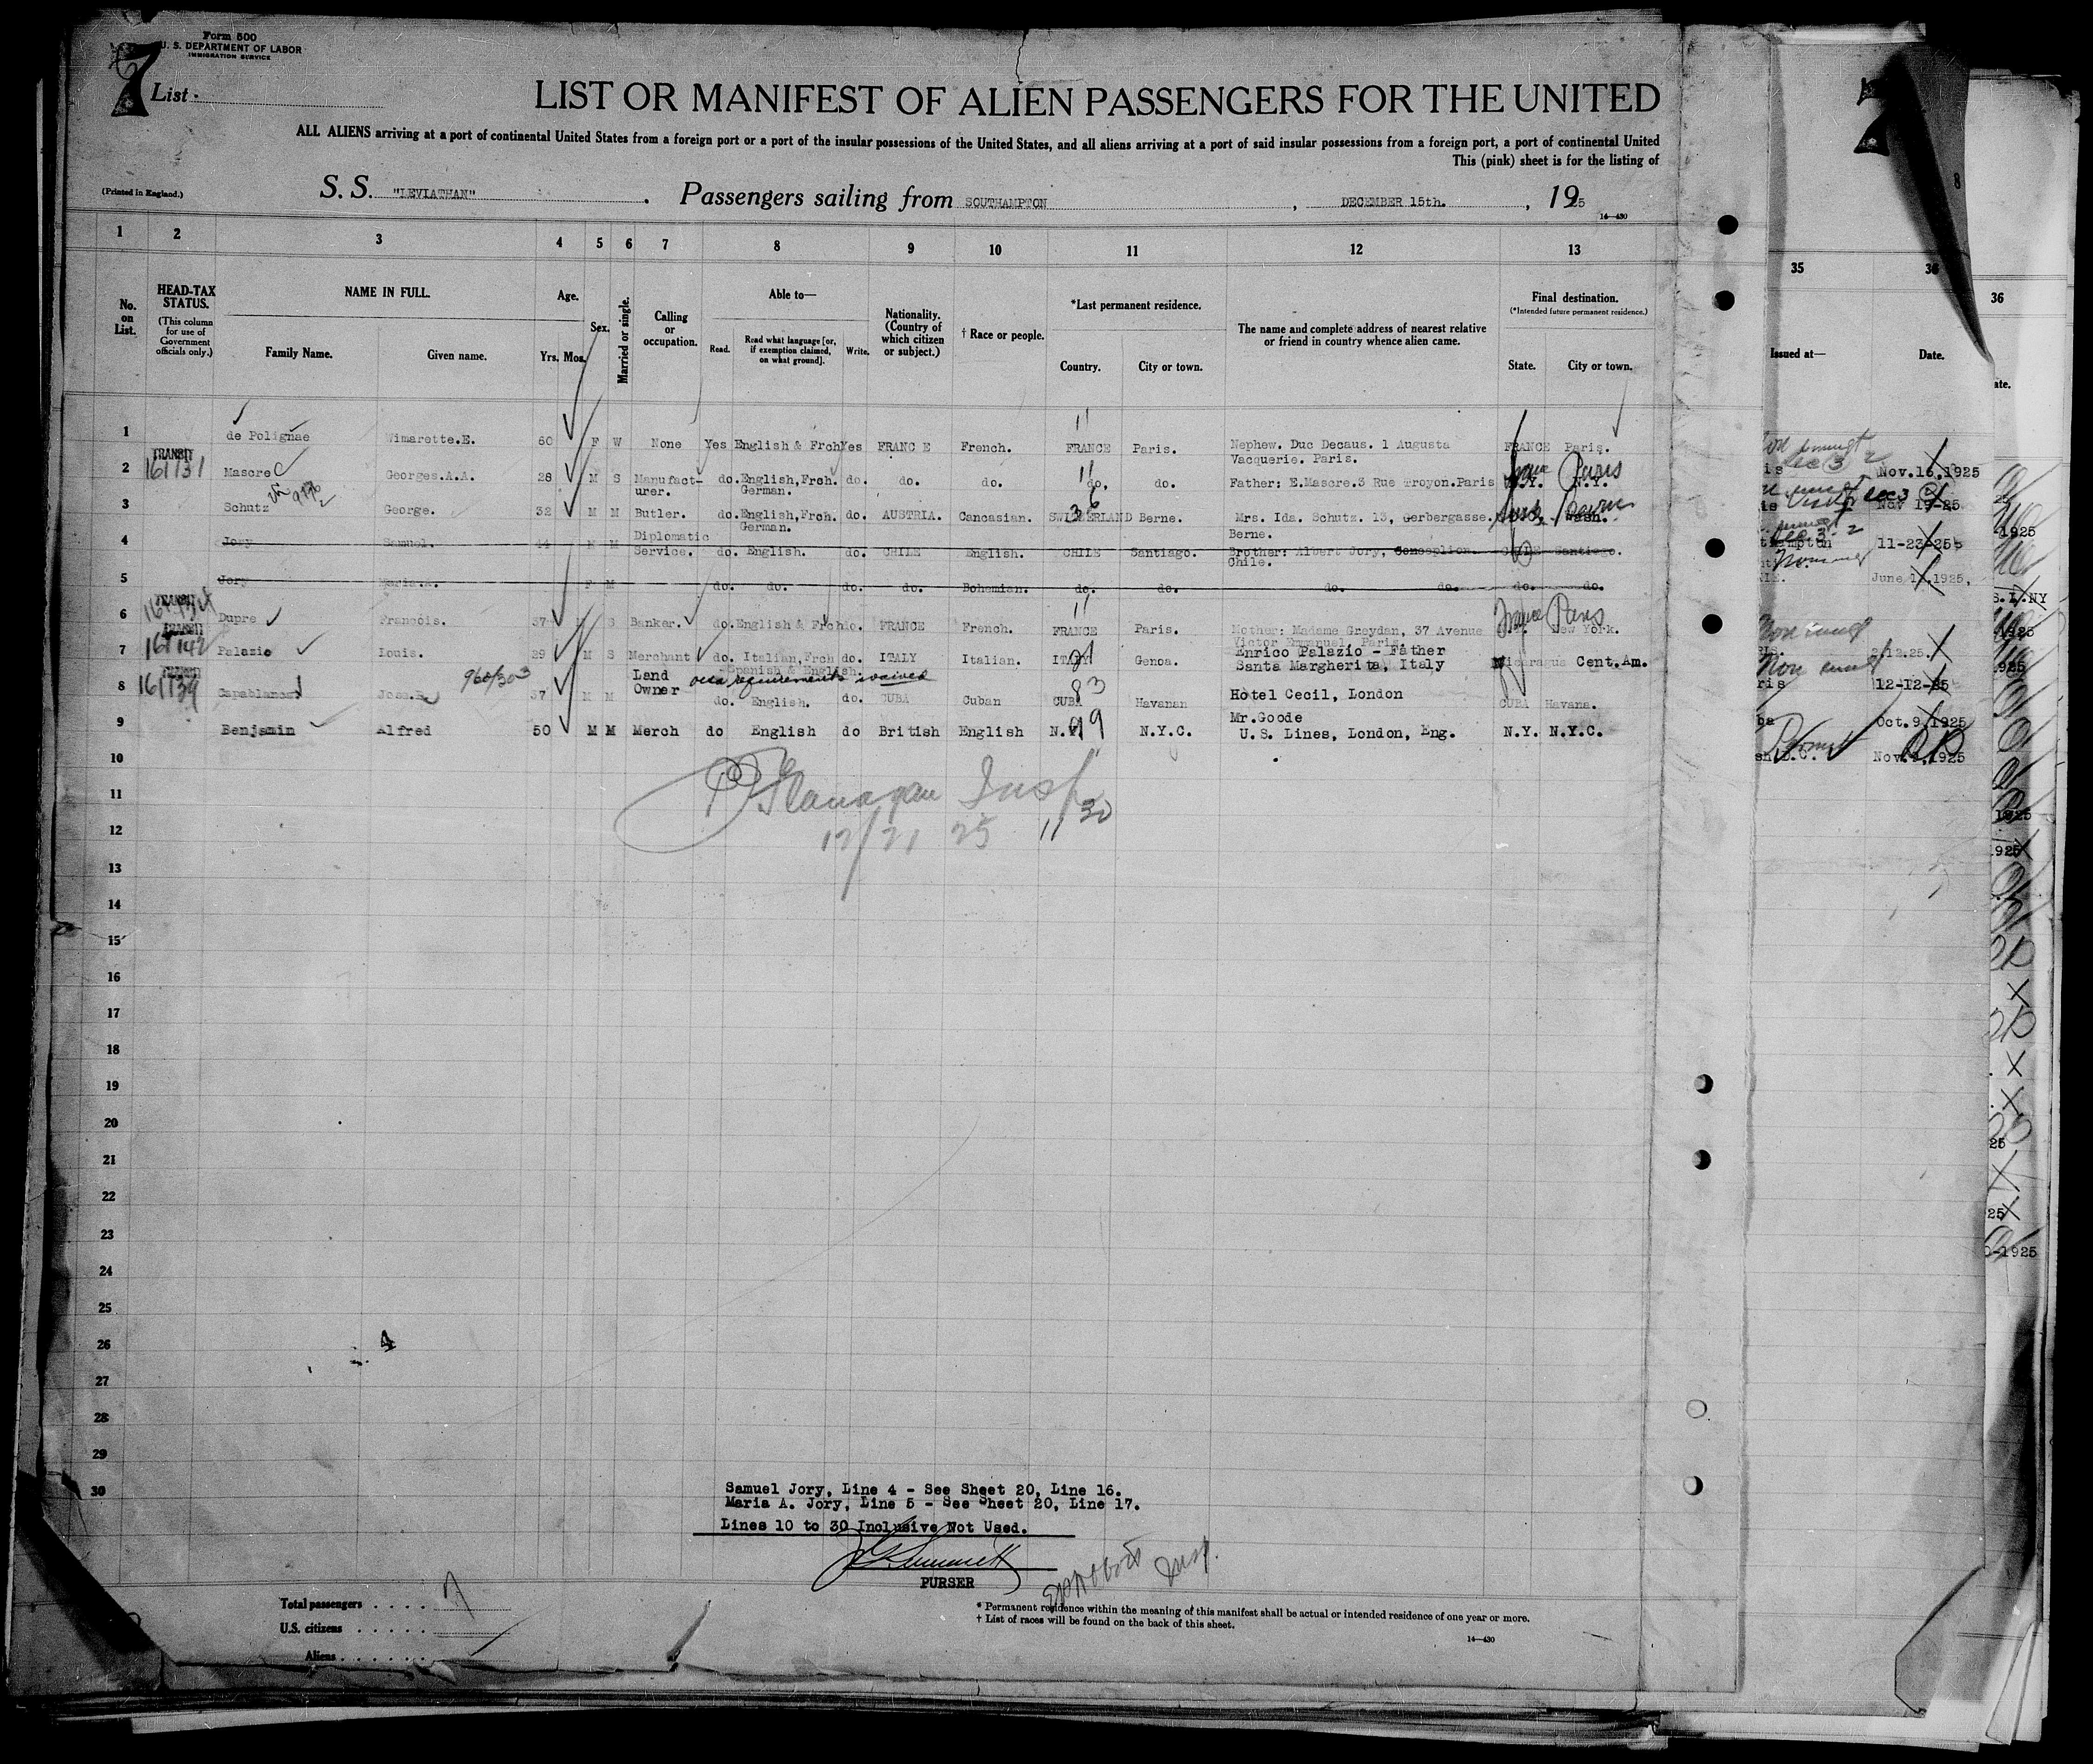 Form 500
U. S. DEPARTMENT OF LABOR
IMMIGRATION SERVICE
7
List
LIST OR MANIFEST OF ALIEN PASSENGERS FOR THE UNITED
ALL ALIENS arriving at a port of continental United States from a foreign port or a port of the insular possessions of the United States, and all aliens arriving at a port of said insular possessions from a foreign port, a port of continental United
This (pink) sheet is for the listing of
(Printed in England.)
S. S. "LEVIATHAN" . Passengers sailing from SOUTHAMPTON , DECEMBER 15th. , 1925
14—430
1 2 3 4 5 6 7 8 9 10 11 12 13
No. on List.
HEAD-TAX STATUS.
(This column for use of Government officials only.)
NAME IN FULL.
Family Name. Given name.
Age.
Yrs. Mos.
Sex.
Married or single.
Calling or occupation.
Able to—
Read. Read what language [or, if exemption claimed, on what ground]. Write.
Nationality. (Country of which citizen or subject.)
† Race or people.
*Last permanent residence.
Country. City or town.
The name and complete address of nearest relative or friend in country whence alien came.
Final destination.
(*Intended future permanent residence.)
State. City or town.
35 36
Issued at— Date.
36
ate.
1 de Polignae Wimarette.E. 60 F W None Yes English & Frch Yes FRANC E French. FRANCE Paris. Nephew. Duc Decaus. 1 Augusta
Vacquerie. Paris. FRANCE Paris.
TRANSIT
161131
2 Mascre Georges.A.A. 28 M S Manufact-
urer. do. English,Frch.
German. do. do. do. do. do. Father: E.Mascre.3 Rue Troyon.Paris N.Y. N.Y.
France Paris
Nov.16,1925
3 Schutz George. 32 M M Butler. do. English,Frch.
German. do. AUSTRIA. Cancasian. SWITZERLAND Berne. Mrs. Ida. Schutz. 13, Gerbergasse.
Berne. Wash.
Nov 17-25
4 Jory Samuel. 44 M M Diplomatic
Service. do. English. do. CHILE English. CHILE Santiago. Brother: Albert Jory, Conseplion.
Chile. CHILE Santiago.
11-23-25
5 Jory Maria.A. F M do. do. do. do. Bohemian. do. do. do. do. do. do.
June 1,1925,
TRANSIT
6 Dupre Francois. 37 M S Banker. do. English & Frch do. FRANCE French. FRANCE Paris. Mother: Madame Greydan, 37 Avenue
Victor Emmanuel. Paris. New York.
France Paris
TRANSIT
161142
7 Palazio Louis. 29 M S Merchant do. Italian,Frch
Spanish & English. do. ITALY Italian. ITALY Genoa. Enrico Palazio - Father
Santa Margherita, Italy Nicaragua Cent.Am.
2.12.25.
TRANSIT
161139
960/303
8 Capablanca Jose.R. 37 M M Land
Owner do. English. do. CUBA Cuban CUBA Havanan Hotel Cecil, London CUBA Havana.
requirements waived
12-12-25
9 Benjamin Alfred 50 M M Merch do English do British English N.Y. N.Y.C. Mr.Goode
U.S. Lines, London, Eng. N.Y. N.Y.C.
Oct.9,1925
Nov.9,1925
10
Flanagan Insp
11
12/21 25 11 30
12
13
14
15
16
17
18
19
20
21
22
23
24
25
26
27
28
29
30
Samuel Jory, Line 4 - See Sheet 20, Line 16.
Maria A. Jory, Line 5 - See Sheet 20, Line 17.
Lines 10 to 30 Inclusive Not Used.
PURSER
Total passengers . . . . 7
U.S. citizens . . . . .
Aliens . . . . . .
* Permanent residence within the meaning of this manifest shall be actual or intended residence of one year or more.
† List of races will be found on the back of this sheet.
14—430